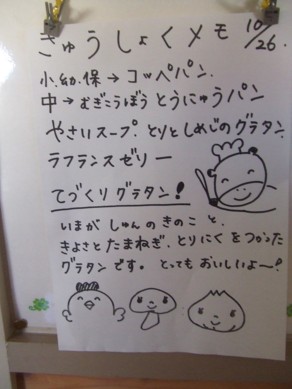 きゅうしょくメモ 10/26.
小.幼.保→コッペパン.
中→むぎこうぼう とうにゅうパン
やさいスープ. とりとしめじのグラタン.
ラフランスゼリー
てづくりグラタン!
いまが しゅんのきのこ と、
きよさとたまねぎ、とりにくをつかった
グラタンです。 とっても おいしいよ〜!